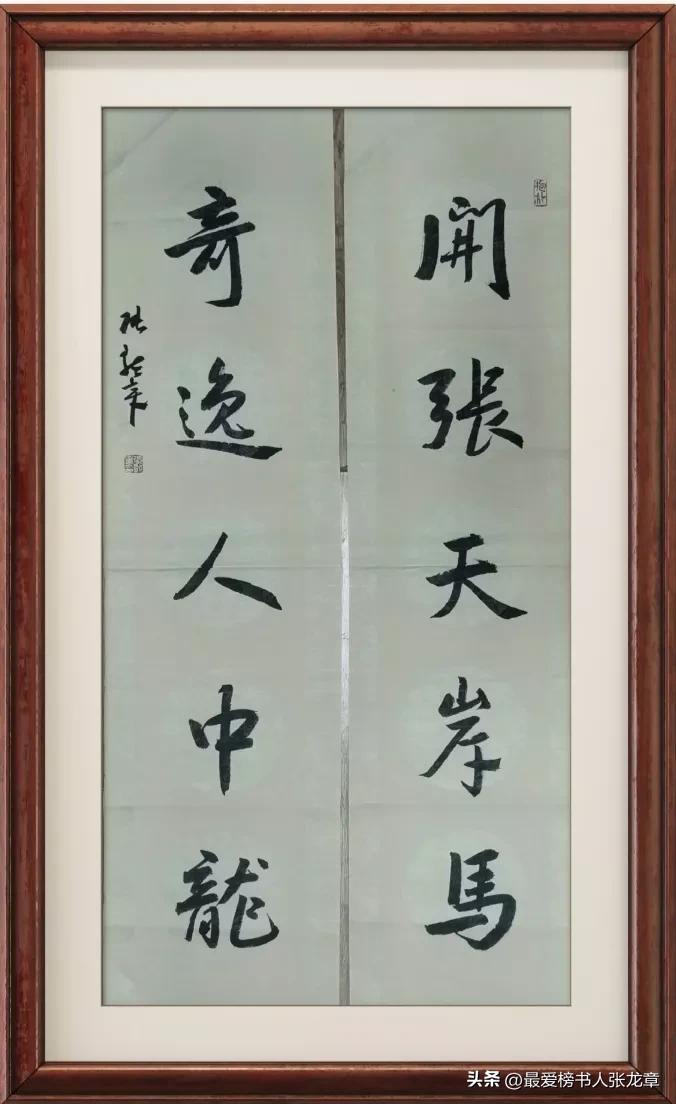 開張天岸馬
奇逸人中龍
张龙章
头条 @最爱榜书人张龙章